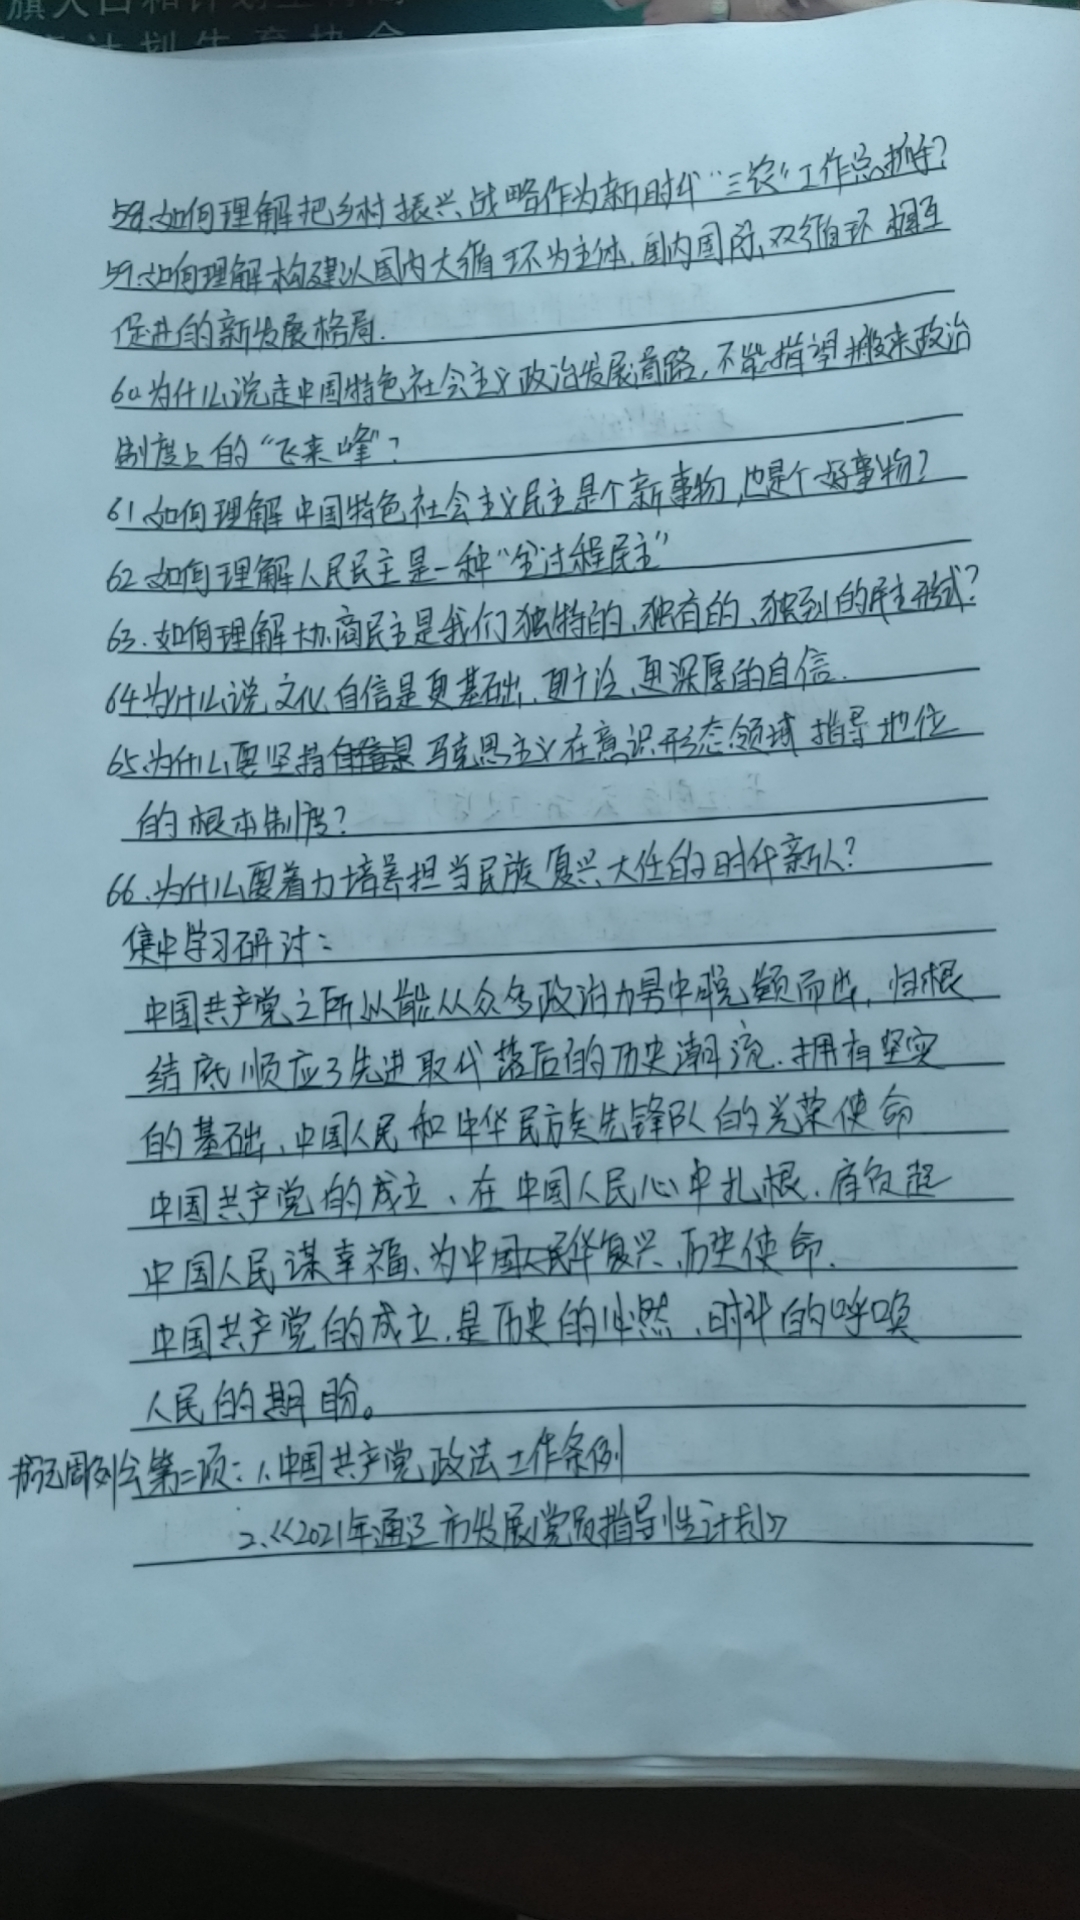 58.如何理解把乡村振兴战略作为新时代“三农”工作总抓手?
59.如何理解构建以国内大循环为主体,国内国际双循环相互
促进的新发展格局.
60.为什么说走中国特色社会主义政治发展道路,不能指望搬来政治
制度上的“飞来峰”?
61.如何理解中国特色社会主义民主是个新事物,也是个好事物?
62.如何理解人民民主是一种“全过程民主”
63.如何理解协商民主是我们独特的、独有的、独到的民主形式?
64.为什么说文化自信是更基础、更广泛、更深厚的自信.
65.为什么要坚持马克思主义在意识形态领域指导地位
的根本制度?
66.为什么要着力培养担当民族复兴大任的时代新人?
集中学习研讨:
中国共产党之所以能从众多政治力量中脱颖而出,归根
结底顺应了先进取代落后的历史潮流.拥有坚实
的基础、中国人民和中华民族先锋队的光荣使命
中国共产党的成立、在中国人民心中扎根.肩负起
中国人民谋幸福、为中华复兴、历史使命.
中国共产党的成立,是历史的必然、时代的呼唤
人民的期盼。
周例会第二项:1.中国共产党政法工作条例
2.《2021年通辽市发展党员指导性计划》